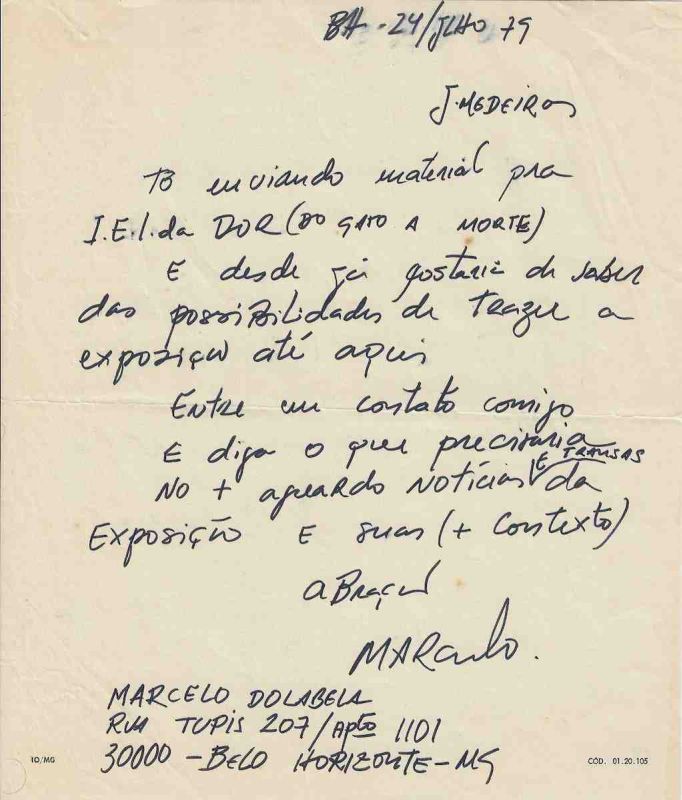 BH - 24/JLHO 79
J. MEDEIROS
TÔ enviando material pra
I.E.I. da DOR (DO GATO A MORTE)
E desde já gostaria de saber
das possibilidades de trazer a
exposição até aqui
Entre em contato comigo
E diga o que precisaria
NO + aguardo NOTÍCIAS E TRANSAS da
EXPOSIÇÃO E suas (+ contexto)
aBraços
MARcelo.
MARCELO DOLABELA
RUA TUPIS 207 / Apto 1101
30000 - BELO HORIZONTE - MG
IO/MG
CÓD. 01.20.105